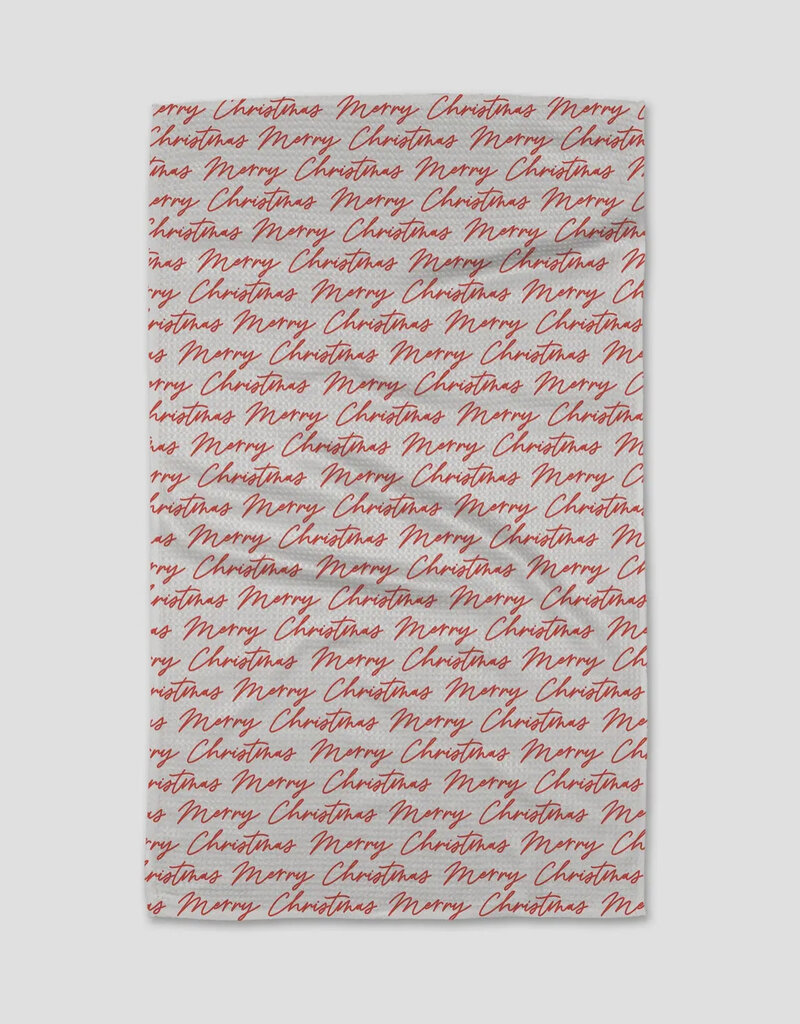 erry Christmas Merry Christmas Merry C
Christmas Merry Christmas Merry Christmas
tmas Merry Christmas Merry Christmas M
erry Christmas Merry Christmas Merry C
hristmas Merry Christmas Merry Christmas
mas Merry Christmas Merry Christmas M
rry Christmas Merry Christmas Merry Ch
ristmas Merry Christmas Merry Christmas
as Merry Christmas Merry Christmas Me
erry Christmas Merry Christmas Merry C
hristmas Merry Christmas Merry Christma
mas Merry Christmas Merry Christmas M
rry Christmas Merry Christmas Merry Ch
hristmas Merry Christmas Merry Christmas
as Merry Christmas Merry Christmas M
erry Christmas Merry Christmas Merry C
ristmas Merry Christmas Merry Christmas
as Merry Christmas Merry Christmas Me
rry Christmas Merry Christmas Merry Ch
ristmas Merry Christmas Merry Christmas
as Merry Christmas Merry Christmas Me
rry Christmas Merry Christmas Merry Ch
ristmas Merry Christmas Merry Christmas
as Merry Christmas Merry Christmas Me
rry Christmas Merry Christmas Merry Ch
ristmas Merry Christmas Merry Christmas
as Merry Christmas Merry Christmas Me